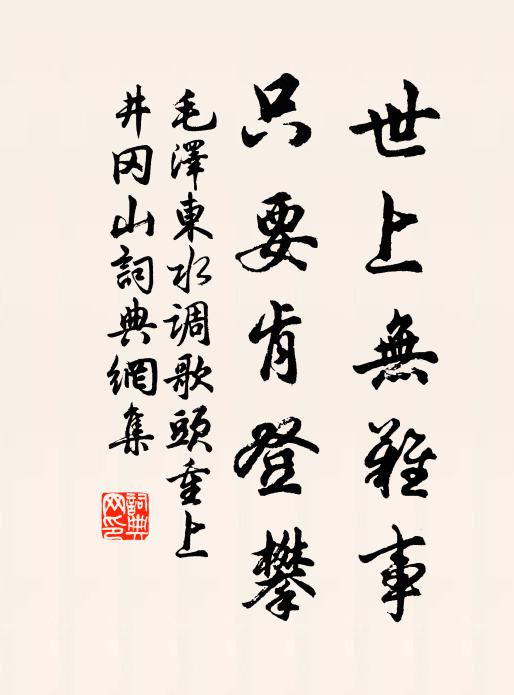 世上無難事
只要肯登攀
毛澤東水调歌頭重上
井冈山詞典網集
詞典
网印